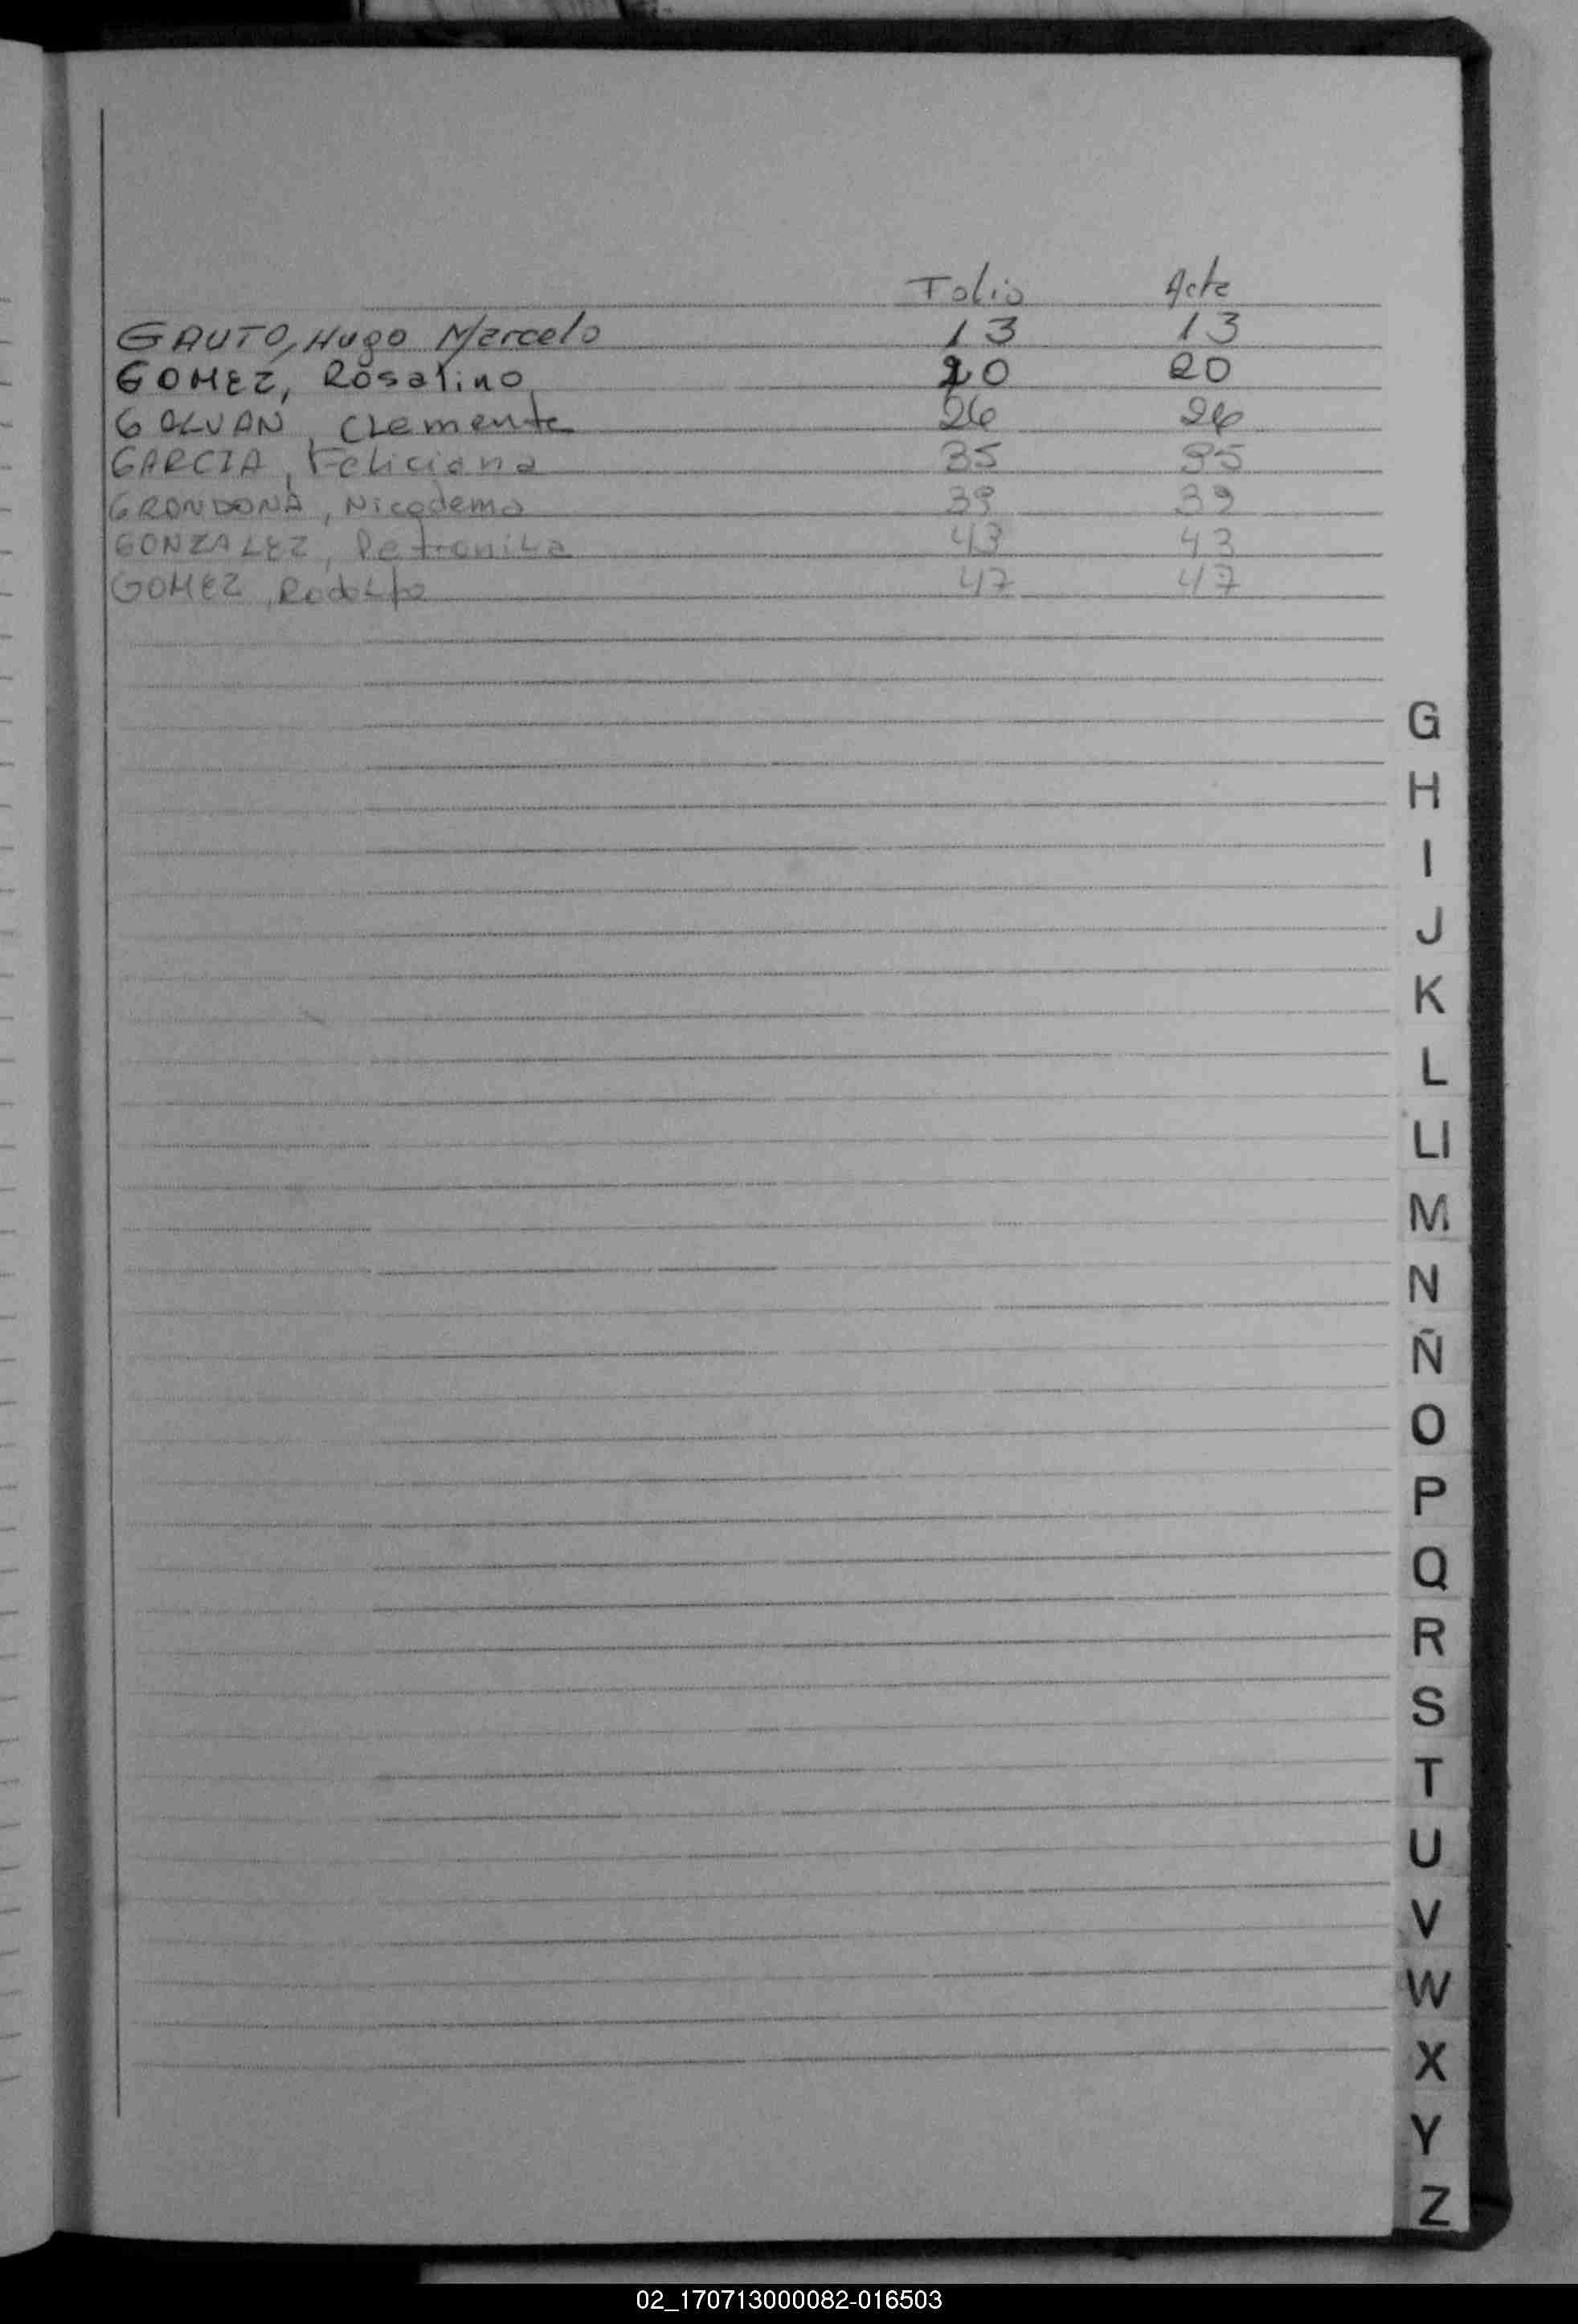 Folio Acta
GAUTO, Hugo Marcelo 13 13
GOMEZ, Rosalino 20 20
GALVAN, Clemente 26 26
GARCIA, Feliciana 35 35
GRONDONA, Nicodemo 39 39
GONZALEZ, Petronila 43 43
GOMEZ, Rodolfo 47 47
G
H
I
J
K
L
Ll
M
N
Ñ
O
P
Q
R
S
T
U
V
W
X
Y
Z
02_170713000082-016503